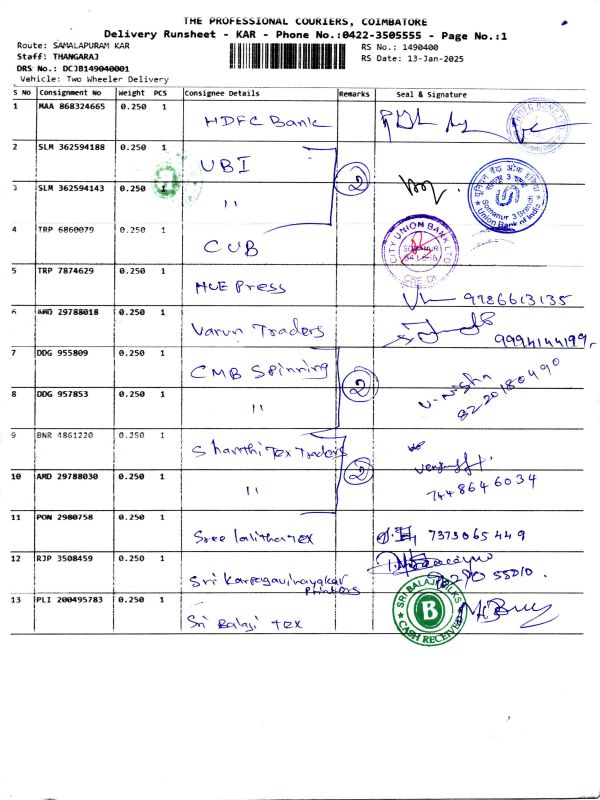 THE PROFESSIONAL COURIERS, COIMBATORE
Delivery Runsheet - KAR - Phone No.:0422-3505555 - Page No.:1
Route: SAMALAPURAM KAR
RS No.: 1490400
Staff: THANGARAJ
RS Date: 13-Jan-2025
DRS No.: DCJB149040001
Vehicle: Two Wheeler Delivery
S No Consignment No Weight PCS Consignee Details Remarks Seal & Signature
1 MAA 868324665 0.250 1 HDFC Bank
2 SLM 362594188 0.250 1 UBI
2
3 SLM 362594143 0.250 1 "
यूनियन बैंक ऑफ इंडिया
Somanur 3 Branch
Union Bank of India
4 TRP 6860079 0.250 1 CUB
CITY UNION BANK LTD
5 TRP 7874629 0.250 1 HUE Press 9786613135
6 AMD 29788018 0.250 1 Varun Traders 9994144199
7 DDG 955809 0.250 1 CMB Spinning
2
U. Nisha
8220180490
8 DDG 957853 0.250 1 "
9 BNR 4861220 0.250 1 Shanthi Tex Traders
2
10 AMD 29788030 0.250 1 " 7448646034
11 PON 2980758 0.250 1 Sree lalitha Tex 7373065449
12 RJP 3508459 0.250 1 Sri Karpagavinaygkar
Printers
13 PLI 200495783 0.250 1 Sri Balaji Tex
SRI BALAJI SILKS
B
CASH RECEIVED